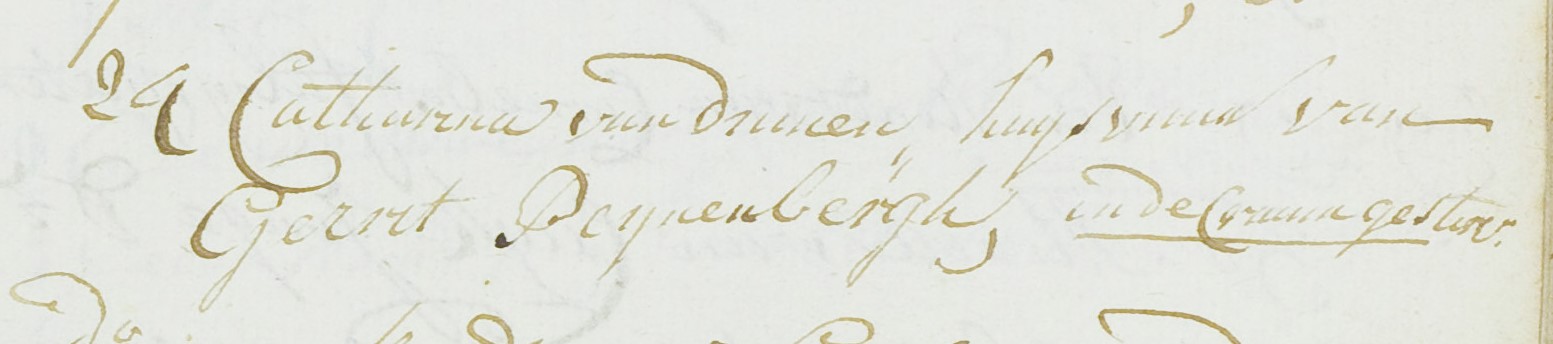 24 Catharina van Drunen, huysvrouw van
Gerrit Peynenbergh, in de Craam gestorv: